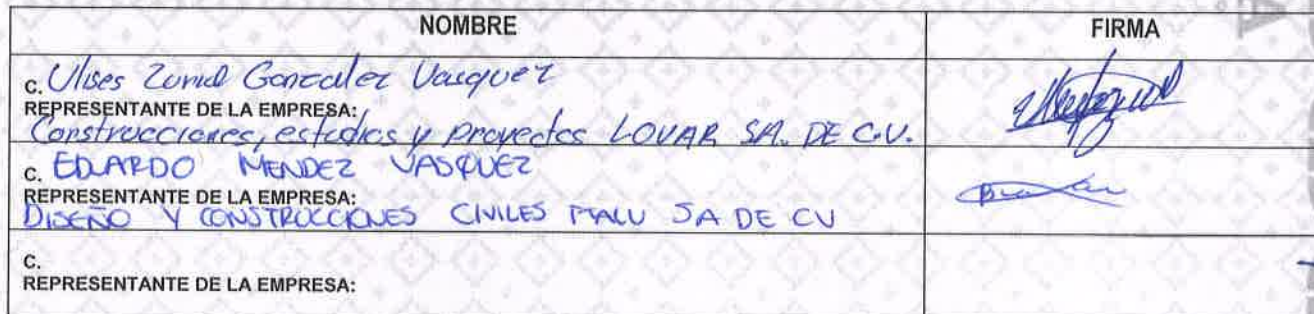 NOMBRE FIRMA
C. Ulises Zurial Gonzalez Vasquez
REPRESENTANTE DE LA EMPRESA:
Construcciones, estudios y proyectos LOVAR SA. DE C.V.
C. EDUARDO MENDEZ VASQUEZ
REPRESENTANTE DE LA EMPRESA:
DISEÑO Y CONSTRUCCIONES CIVILES MALU SA DE CV
C.
REPRESENTANTE DE LA EMPRESA: